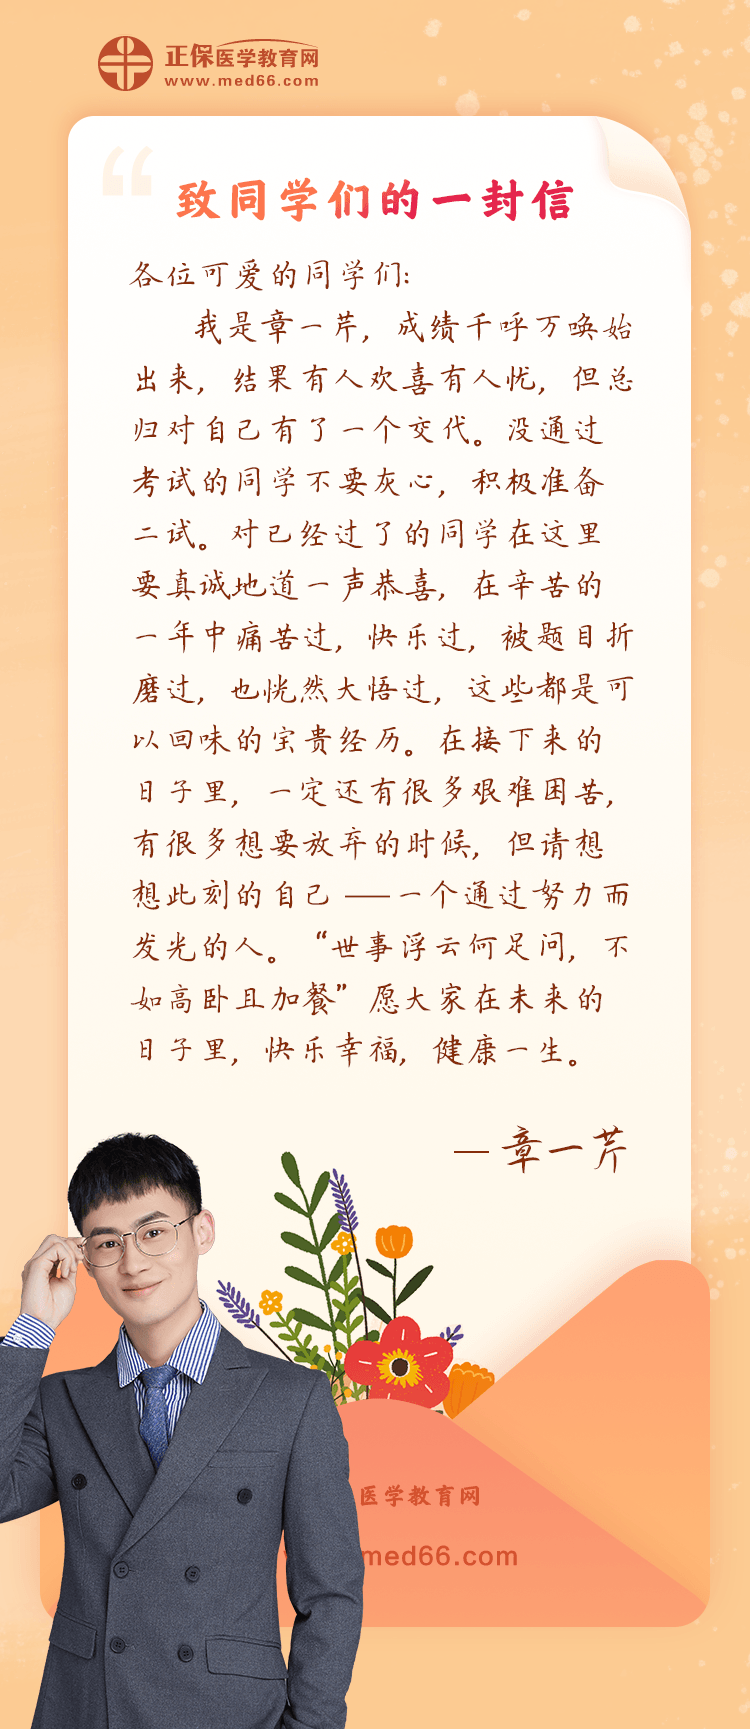 正保医学教育网
www.med66.com
致同学们的一封信
各位可爱的同学们:
我是章一芹，成绩千呼万唤始
出来，结果有人欢喜有人忧，但总
归对自己有了一个交代。没通过
考试的同学不要灰心，积极准备
二试。对已经过了的同学在这里
要真诚地道一声恭喜，在辛苦的
一年中痛苦过，快乐过，被题目折
磨过，也恍然大悟过，这些都是可
以回味的宝贵经历。在接下来的
日子里，一定还有很多艰难困苦，
有很多想要放弃的时候，但请想
想此刻的自己——一个通过努力而
发光的人。“世事浮云何足问，不
如高卧且加餐”愿大家在未来的
日子里，快乐幸福，健康一生。
— 章一芹
医学教育网
med66.com